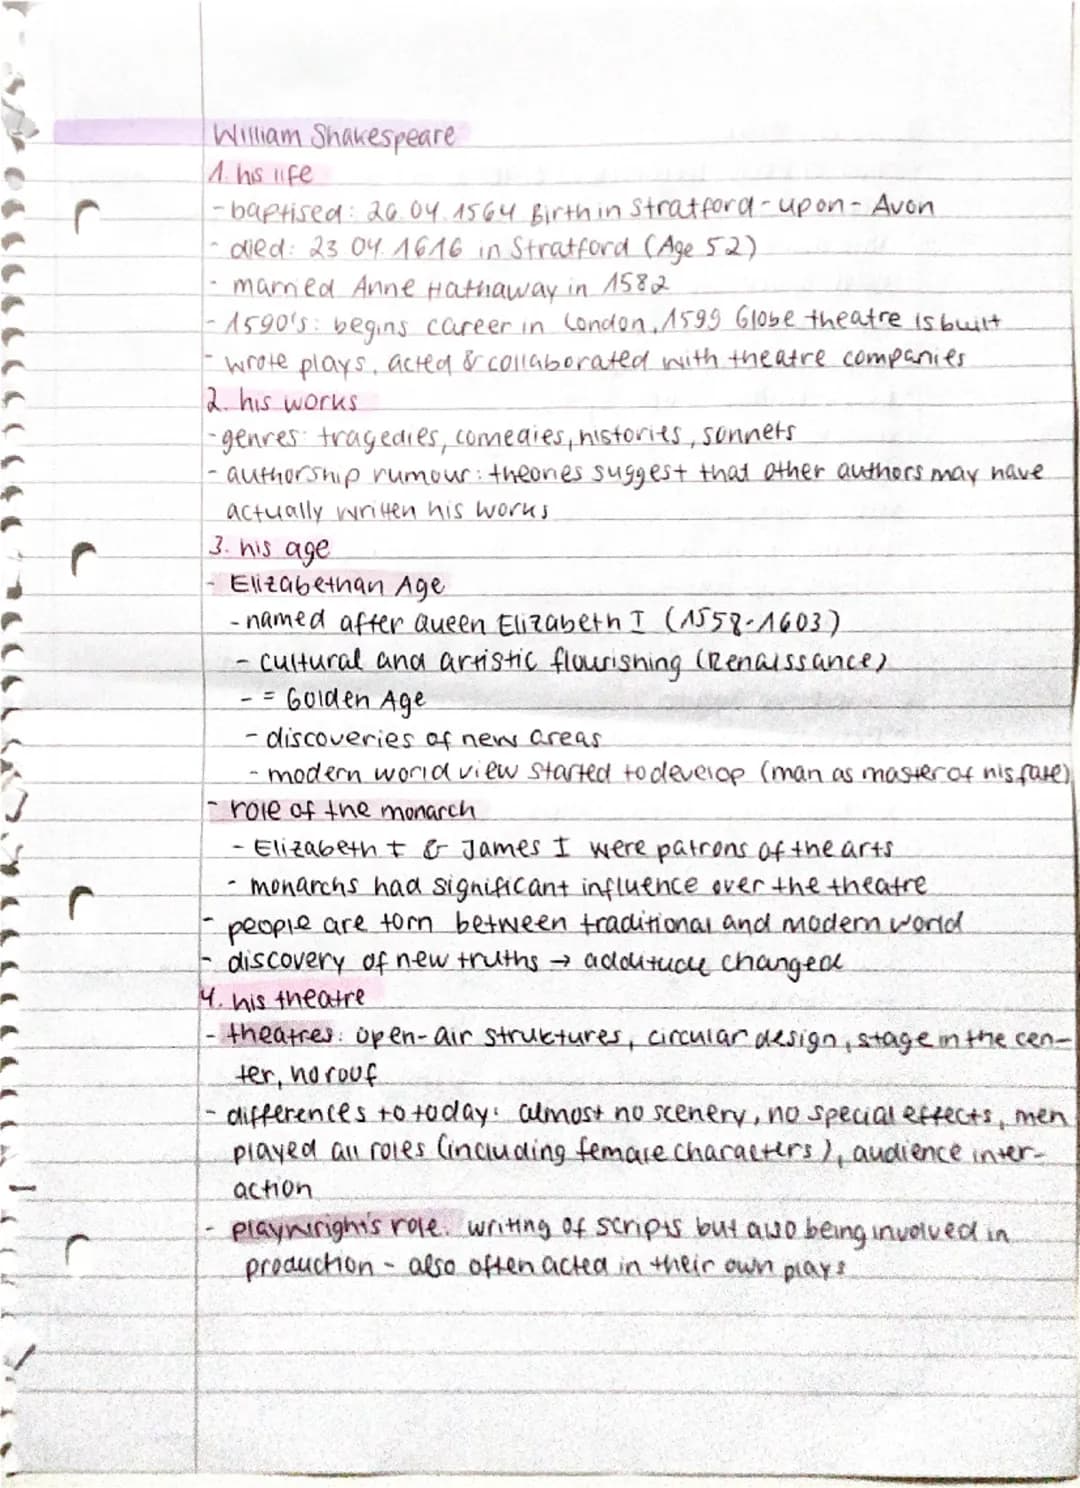 William Shakespeare
1. his life
- baptised: 26.04.1564 Birth in Stratford-upon-Avon
- died: 23.04.1616 in Stratford (Age 52)
- married Anne Hathaway in 1582
- 1590's: begins career in London, 1599 Globe theatre is built
- wrote plays, acted & collaborated with theatre companies
2. his works
- genres: tragedies, comedies, histories, sonnets
- authorship rumour: theories suggest that other authors may have
actually written his works
3. his age
- Elizabethan Age
- named after Queen Elizabeth I (1558-1603)
- cultural and artistic flourishing (Renaissance)
- = Golden Age
- discoveries of new areas
- modern world view started to develop (man as master of his fate)
- role of the monarch
- Elizabeth I & James I were patrons of the arts
- monarchs had significant influence over the theatre
- people are torn between traditional and modern world
- discovery of new truths → additude changed
4. his theatre
- theatres: open-air struktures, circular design, stage in the cen-
ter, no rouf
- differences to today: almost no scenery, no special effects, men
played all roles (including female characters), audience inter-
action
- playwright's role: writing of scripts but also being involved in
production - also often acted in their own plays